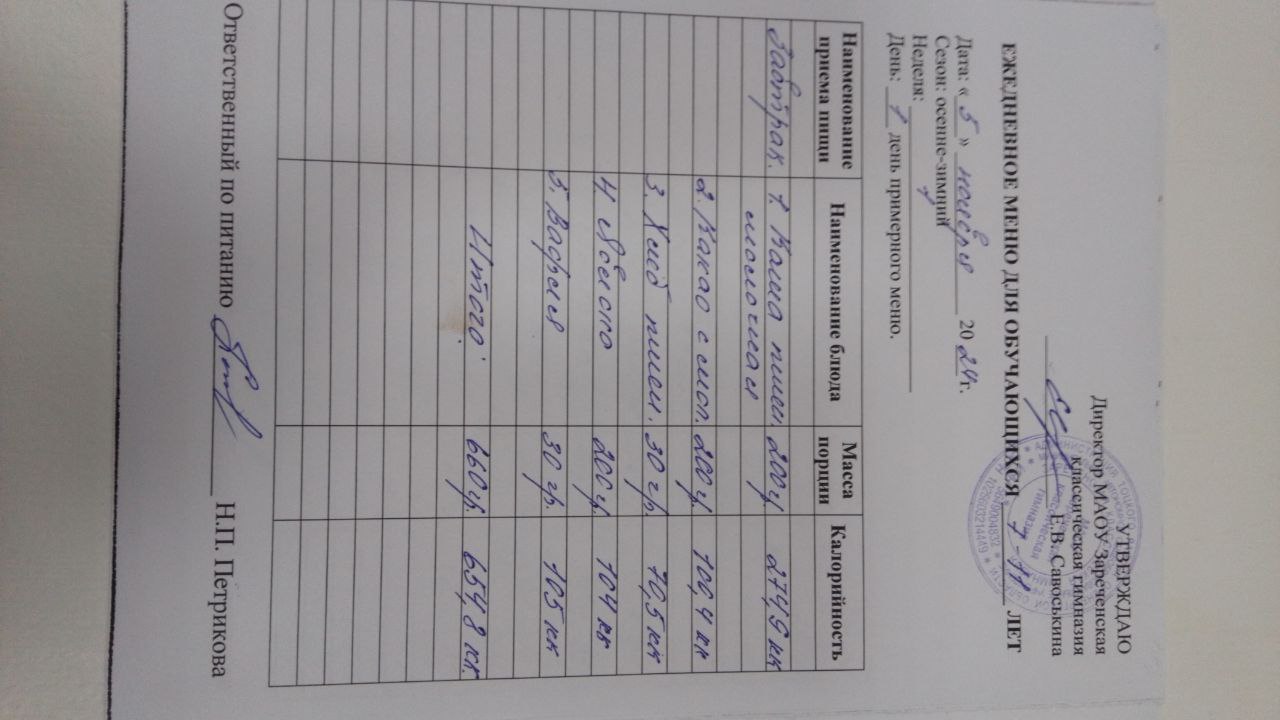 УТВЕРЖДАЮ
Директор МАОУ Зареченская
классическая гимназия
Е.В. Савоськина
ЕЖЕДНЕВНОЕ МЕНЮ ДЛЯ ОБУЧАЮЩИХСЯ 7-11 ЛЕТ
Дата: « 5 » ноября 2024 г.
Сезон: осенне-зимний
Неделя:
День: 1 день примерного меню.
Наименование приема пищи Наименование блюда Масса порции Калорийность
Завтрак. 1. Каша пшен. 200 гр. 274,9 кк
молочная
2. Какао с мол. 200 гр. 100,4 кк
3. Хлеб пшен. 30 гр. 70,5 кк
4. Яблоко 200 гр. 104 кк
5. Вафля 30 гр. 105 кк
Итого: 660 гр. 654,8 кк.
Ответственный по питанию Н.П. Петрикова